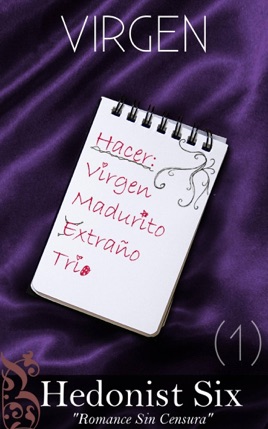 VIRGEN
Hacer:
Virgen
Madurito
Extraño
Trio
(1)
Hedonist Six
"Romance Sin Censura"